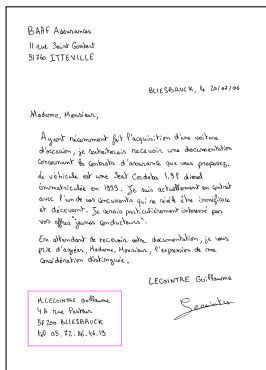 BARF Assurances
11 rue Saint Gombert
91760 ITTEVILLE
BLIESBRUCK, le 20/07/06
Madame, Monsieur,
Ayant récemment fait l'acquisition d'une voiture
d'occasion, je souhaiterais recevoir une documentation
concernant les contrats d'assurance que vous proposez.
Le véhicule est une Seat Cordoba 1.9l diesel
immatriculée en 1999. Je suis actuellement en contrat
avec l'un de vos concurrents qui se révèle être inefficace
et décevant. Je serais particulièrement intéressé par
vos offres "jeunes conducteurs".
En attendant de recevoir votre documentation, je vous
prie d'agréer, Madame, Monsieur, l'expression de ma
considération distinguée.
LECOINTRE Guillaume
Lecointre
M. LECOINTRE Guillaume
4A rue Pasteur
57200 BLIESBRUCK
tel 03.72.86.46.19